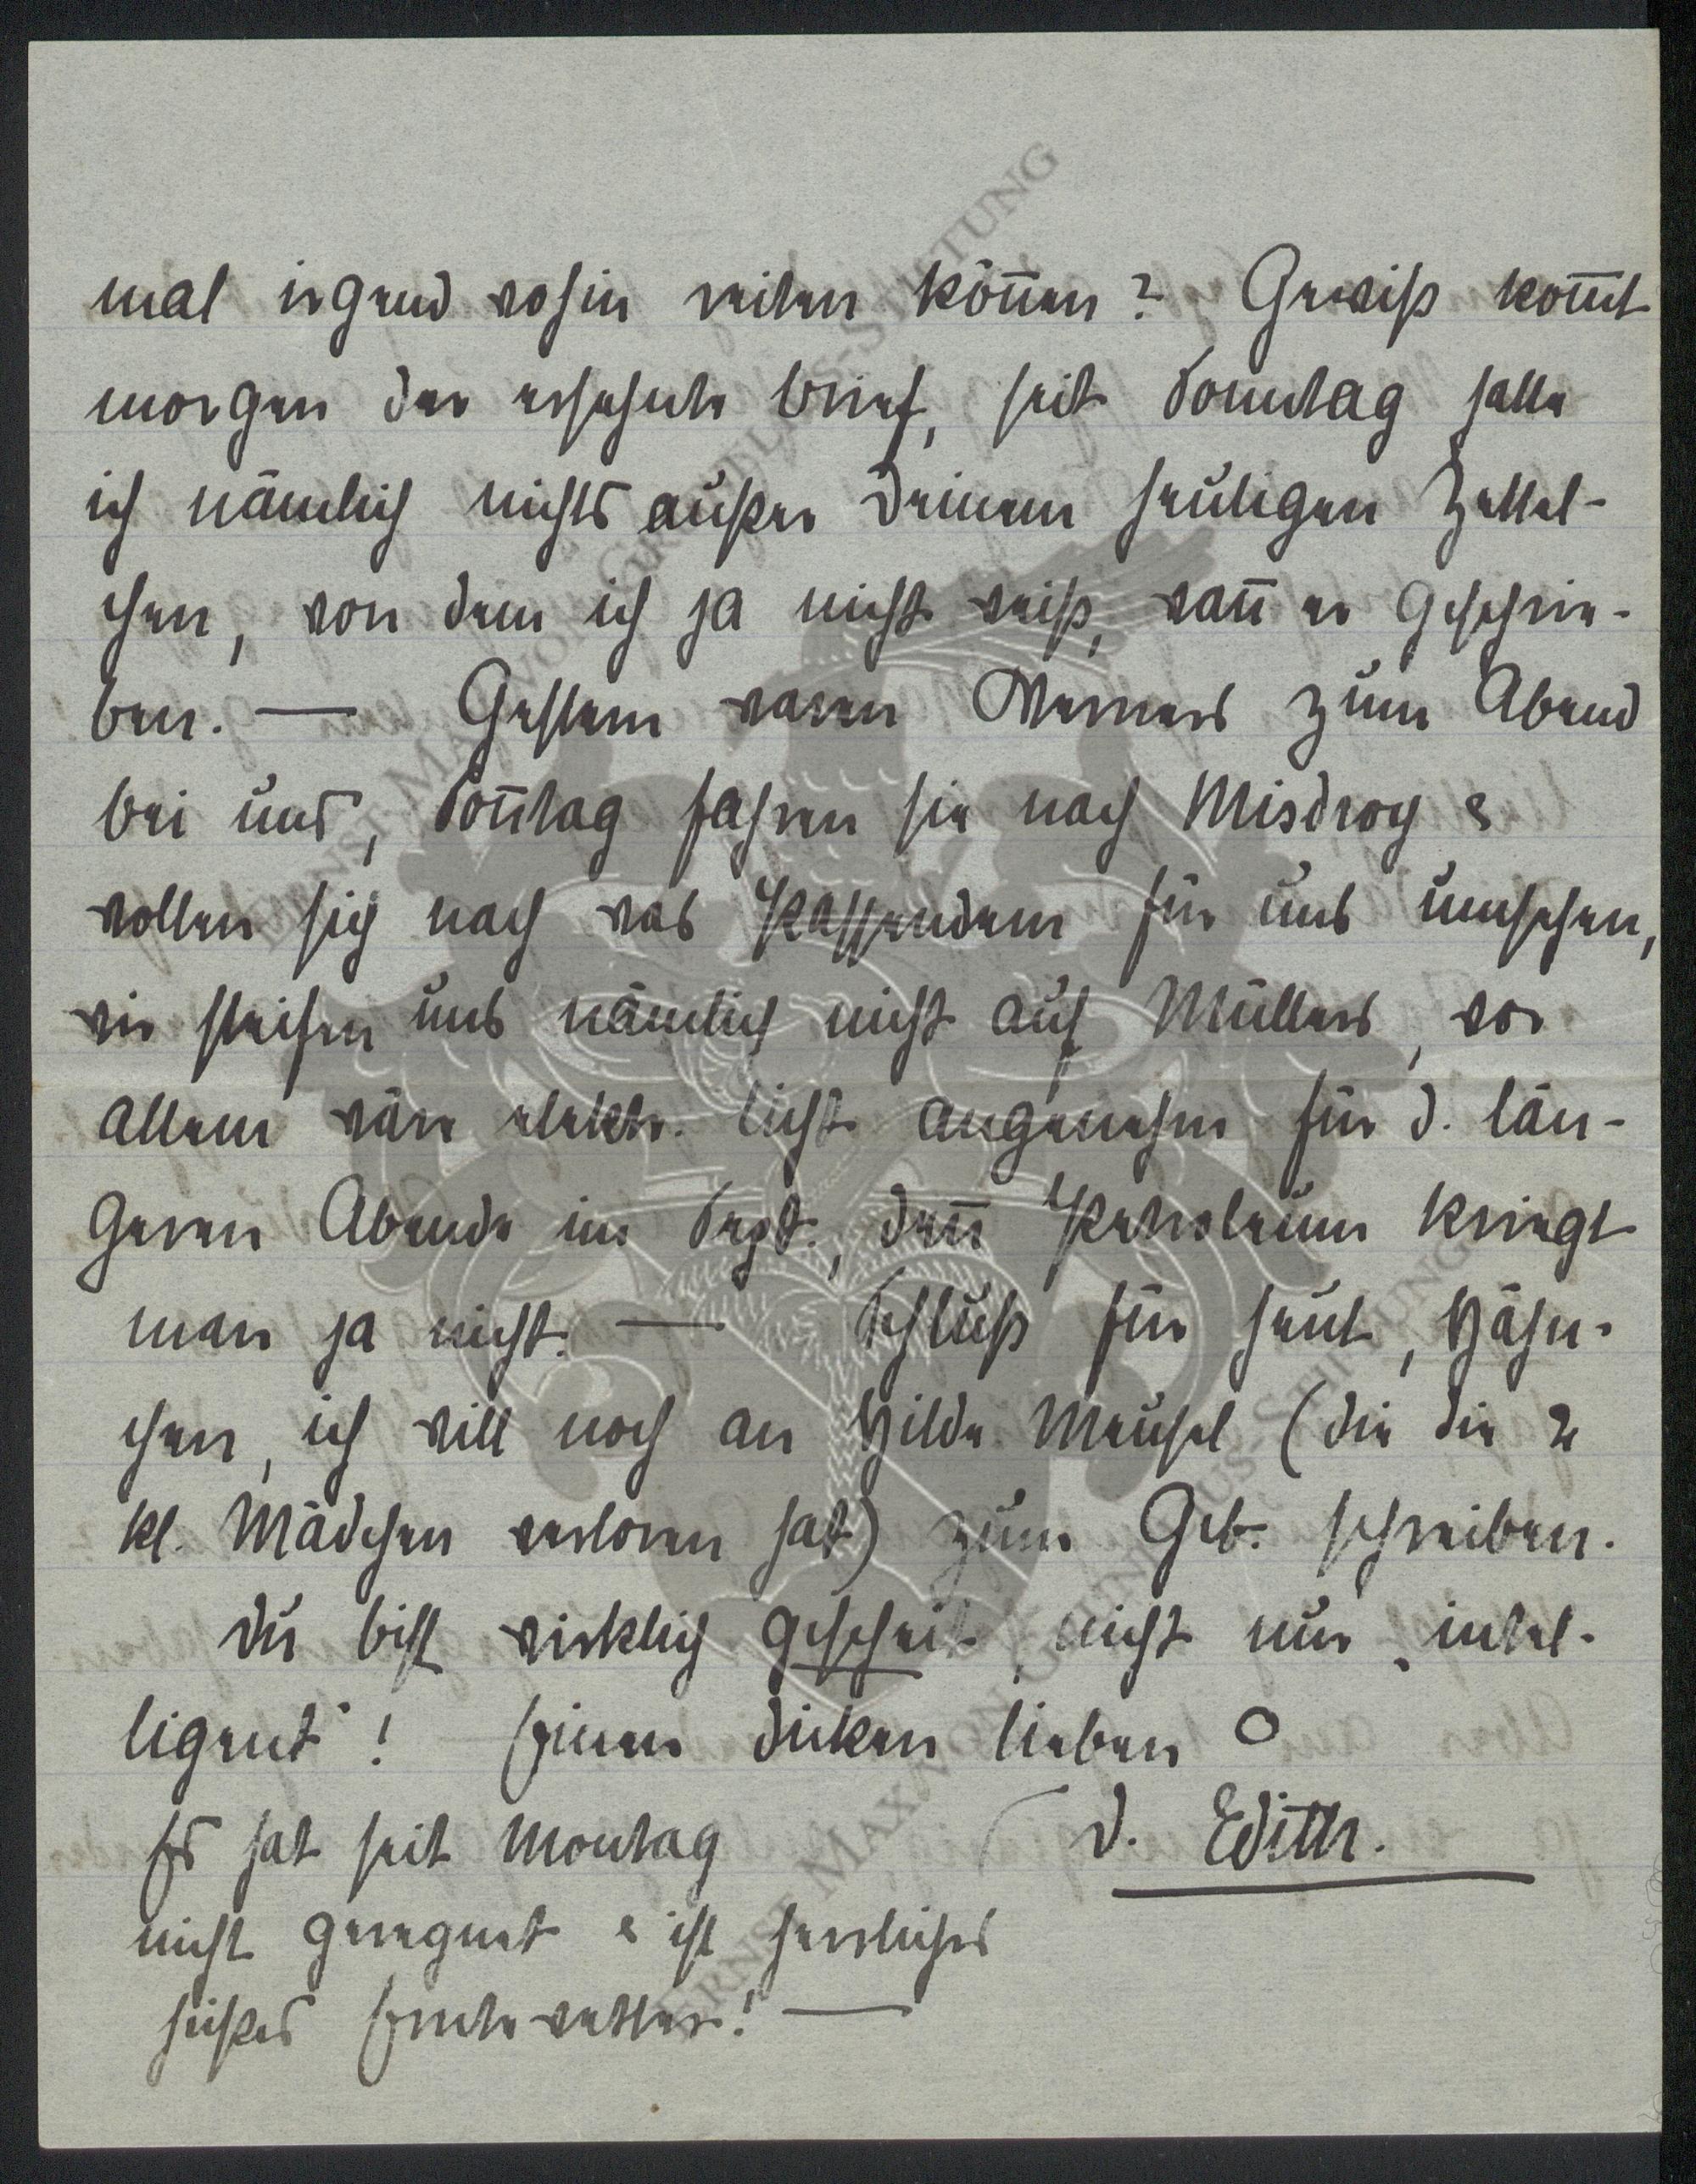 mal irgend wohin reiten können? Gewiß kommt
morgen der ersehnte Brief, seit Sonntag hatte
ich nämlich nichts außer Deinem heutigen Zettel-
chen, von dem ich ja nicht weiß, wann er geschrie-
ben. — Gestern waren Werners zum Abend
bei uns, Sonntag fahren sie nach Misdroy &
wollen sich nach was Passendem für uns umsehen,
wir steifen uns nämlich nicht auf Müllers, vor
allem wäre elektr. Licht angenehm für d. län-
geren Abende im Sept., denn Petroleum kriegt
man ja nicht. — Schluß für heut, Hähn-
chen, ich will noch an Hilde Meusel (die die 2
kl. Mädchen verloren hat) zum Geb. schreiben.
Du bist wirklich gescheit, nicht nur „intel-
ligent"! Einen dicken lieben O
D. Edith.
Es hat seit Montag
nicht geregnet & ist herrliches
heißes Erntewetter! —
ERNST MAX VON GRUNELIUS-STIFTUNG
ERNST MAX VON GRUNELIUS-STIFTUNG